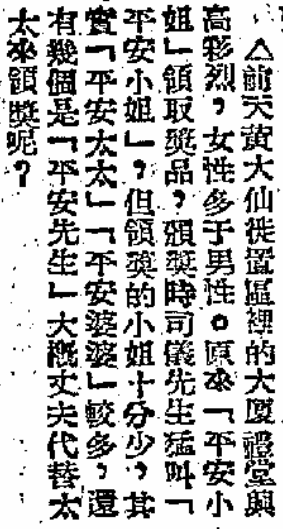 △前天黃大仙徙置區裡的大厦禮堂興
高彩烈，女性多于男性。原來「平安小
姐」領取獎品，頒獎時司儀先生猛叫「
平安小姐」，但領獎的小姐十分少，其
實「平安太太」「平安婆婆」較多，還
有幾個是「平安先生」大概丈夫代替太
太來領獎呢？